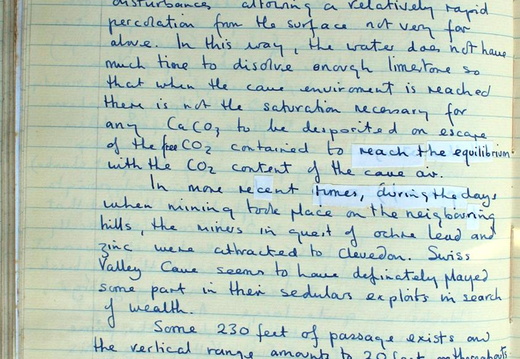 disturbances allowing a relatively rapid
percolation from the surface not very far
above. In this way, the water does not have
much time to disolve enough limestone so
that when the cave enviroment is reached
there is not the saturation necessary for
any CaCO3 to be desposited on escape
of the free CO2 contained to reach the equilibrium
with the CO2 content of the cave air.
In more recent times, during the days
when mining took place on the neigbouring
hills, the miners in quest of ochre lead and
zinc were attracted to Clevedon. Swiss
Valley Cave seems to have definately played
some part in their sedulars exploits in search
of wealth.
Some 230 feet of passage exists and
the vertical range amounts to 20 feet